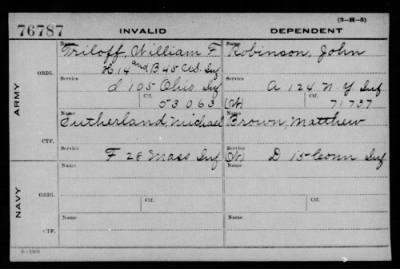 (3-H-5)
76787 INVALID DEPENDENT
Name Name
Triloff, William F Robinson, John
H 14 and B 45 Col. Inf
ORIG. Service Service
I 105 Ohio Inf A 124 N.Y Inf
Ctf. Ctf.
53063 (W) 71737
ARMY
Name Name
Sutherland, Michael Brown, Matthew
CTF. Service Service
F 28 Mass Inf (W) D 15 Conn Inf
Name Name
ORIG. Service Ctf. Service Ctf.
NAVY
Name Name
CTF. Service Service